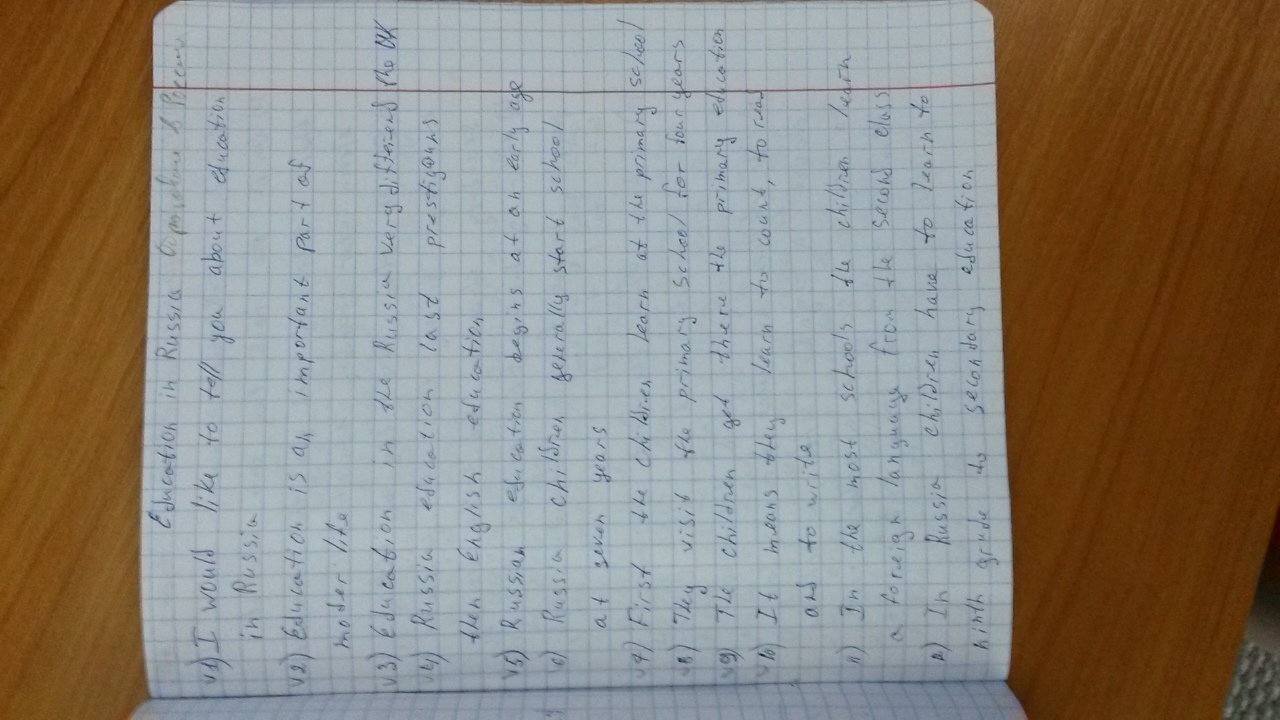 Education in Russia Образование в России
v1) I would like to tell you about education
in Russia
v2) Education is an important part of
moder life
v3) Education in the Russia very differend the UK
v4) Russia education last prestigouns
then English education
v5) Russian education begins at an early age
6) Russia children generally start school
at seven years
v7) First the children learn at the primary school
v8) They visit the primary school for four years
v9) The children get there the primary education
v10) It means they learn to count, to read
and to write
11) In the most schools the children learn
a foreign language from the second class
12) In Russia children have to learn to
ninth grade to secondary education